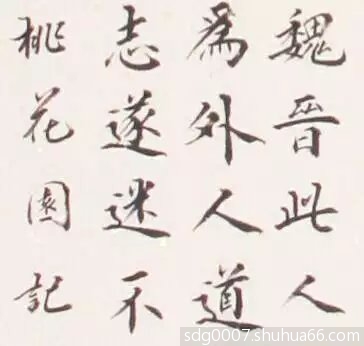 魏晉此人
為外人道
志遂迷不
桃花園記
sdg0007.shuhua66.com